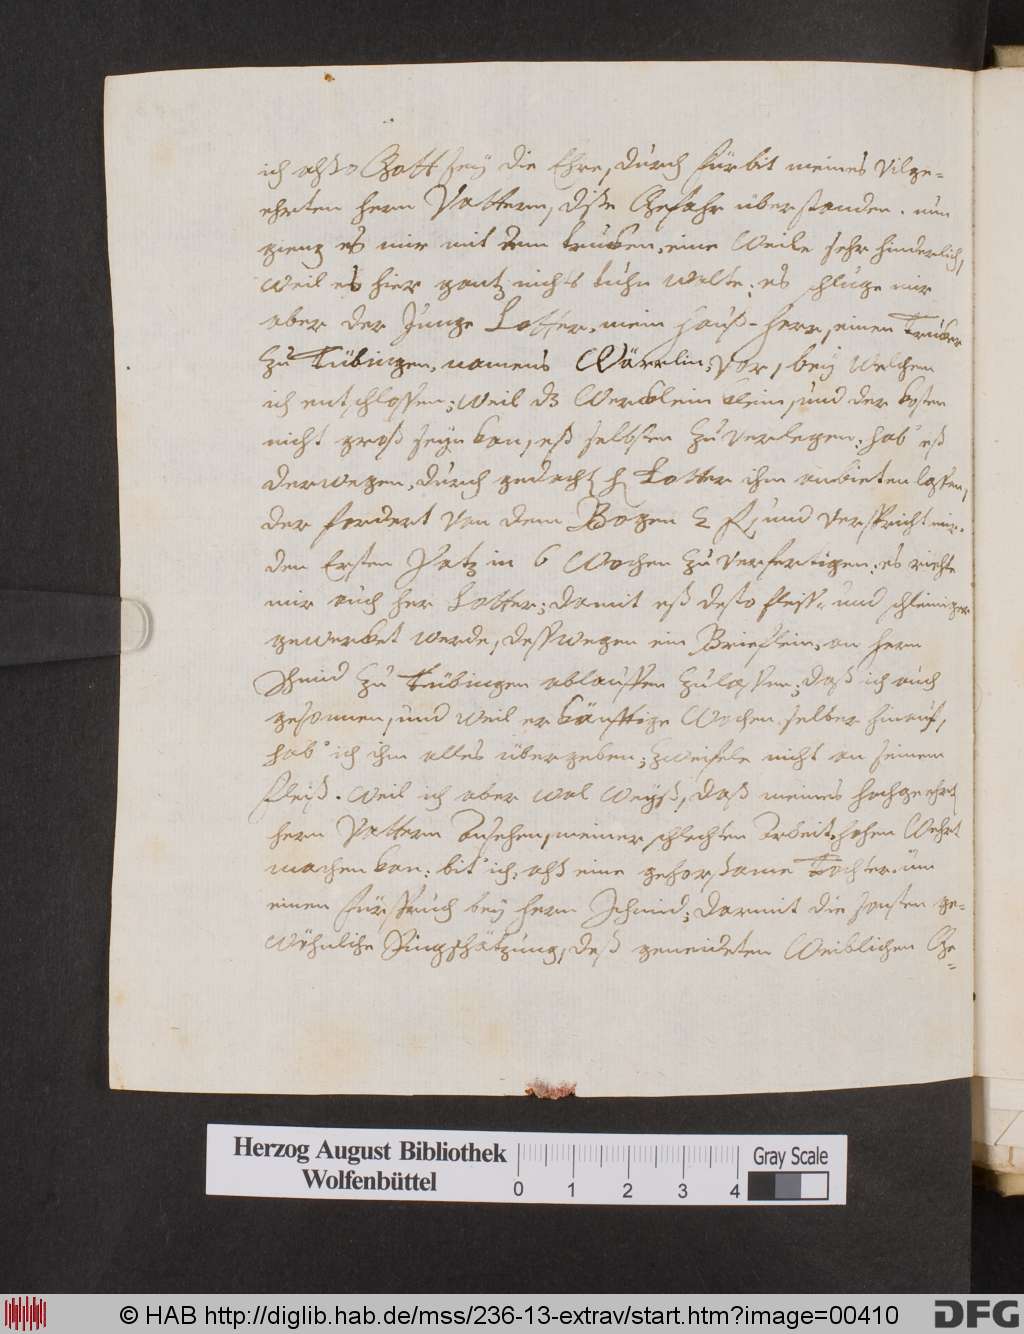 ich also Gott sey die Ehre, durch fürbit meines vilge-
ehrten herrn Vattern, diße Gefahr überstanden. nun
gieng es mir mit dem truken, eine Weile sehr hinderlich,
weil es hier gantz nichts tuhn wolte: es schluge mir
aber der Junge Lotter, mein Hauß-herr, einen Truker
zu Tübingen, namens Wärrlin, vor, bey welchem
ich entschlossen; weil dz Werklein klein, und der kosten
nicht groß seyn kan, eß selbsten zu verlegen: hab' eß
derwegen, durch gedacht h Lotter ihm anbieten lassen,
der fordert von dem Bogen 2 fl und verspricht mir,
den Ersten Satz in 6 Wochen zu verfertigen: es riethe
mir auch her Lotter; damit eß desto fleiss- und schleiniger
gewerket werde, desswegen ein Brieflein, an herrn
Schmid zu Tübingen ablauffen zulassen; daß ich auch
gesonnen, und weil er künfftige Wochen selber hinauf,
hab' ich ihm alles übergeben; zweifele nicht an seinem
fleiß. Weil ich aber wol weyß, daß meines hochgeehrt
herrn Vattern Ansehen, meiner schlechten Arbeit, hohen Wehrt
machen kan: bit' ich, alß eine gehorsame Tochter, üm
einen fürspruch bey herrn Schmid; darmit die sonsten ge-
wöhnliche Ringschätzung, deß geneideten Weiblichen Ge-
Herzog August Bibliothek
Wolfenbüttel
0 1 2 3 4
Gray Scale
© HAB http://diglib.hab.de/mss/236-13-extrav/start.htm?image=00410
DFG